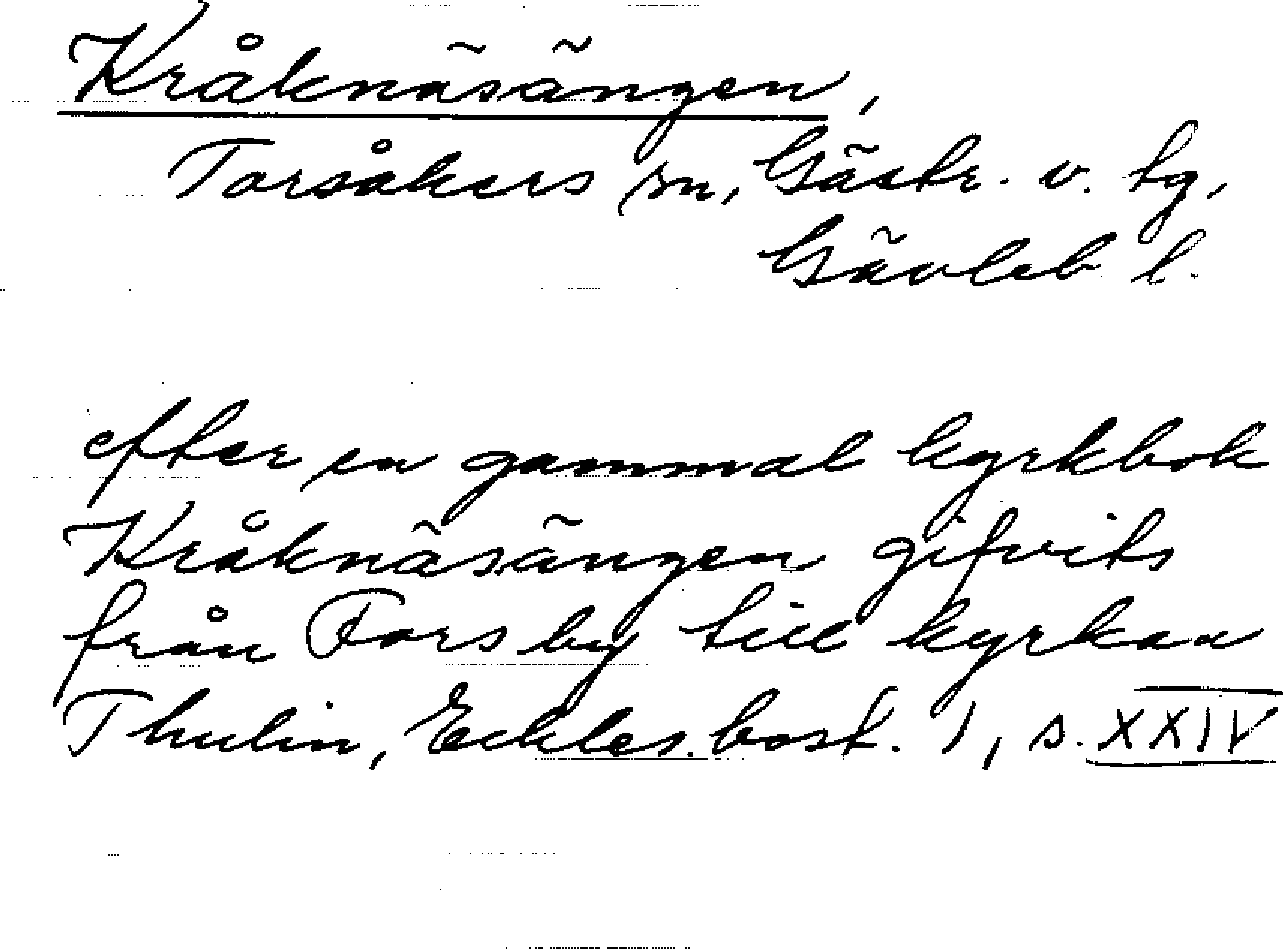 Kråknäsängen,
Torsåkers sn, Gästr. v. tg,
Gävleb l.
efter en gammal kyrkbok
Kråknäsängen gifvits
från Forsby till kyrkan
Thulin, Eckles. bost. I, s. XXIV